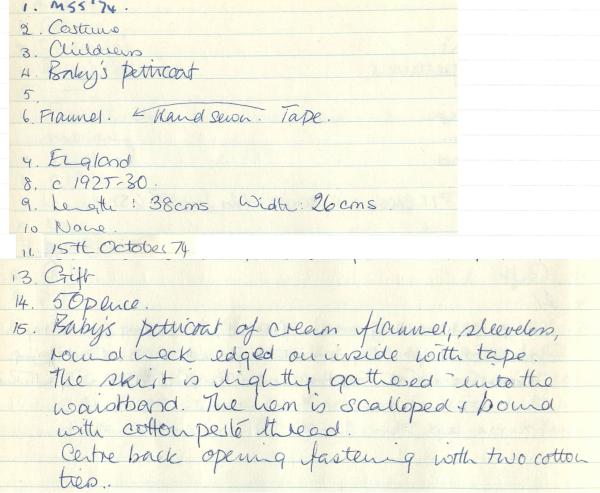 1. MSS '74.
2. Costume
3. Childrens
4. Baby's petticoat
5.
6. Flannel. ← Hand sewn. Tape.
7. England
8. c 1925-30.
9. Length : 38cms Width : 26cms.
10 None.
11. 15th October 74
13. Gift
14. 50pence.
15. Baby's petticoat of cream flannel, sleeveless,
round neck edged on inside with tape.
The skirt is lightly gathered into the
waistband. The hem is scalloped & bound
with cotton perlé thread.
Centre back opening fastening with two cotton
ties..